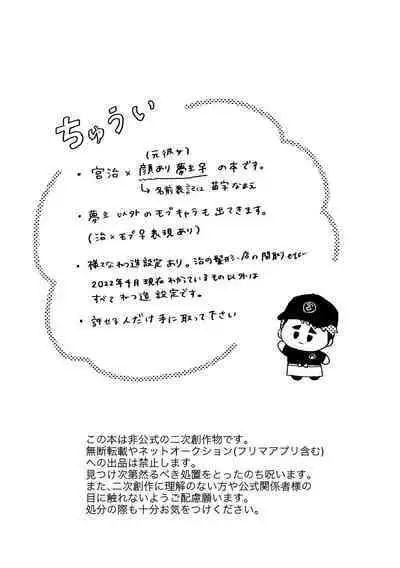 ちゅうい
(元彼女)
・宮治×顔あり夢主♀の本です。
↳名前表記は苗字なまえ
・夢主以外のモブキャラも出てきます。
(治×モブ♀表現あり)
・様々なねつ造設定あり。治の髪形、店の間取りetc…
2022年4月現在わかっているもの以外は
すべてねつ造設定です。
・許せる人だけ手に取って下さい
この本は非公式の二次創作物です。
無断転載やネットオークション(フリマアプリ含む)
への出品は禁止します。
見つけ次第然るべき処置をとったのち呪います。
また、二次創作に理解のない方や公式関係者様の
目に触れないようご配慮願います。
処分の際も十分お気をつけください。